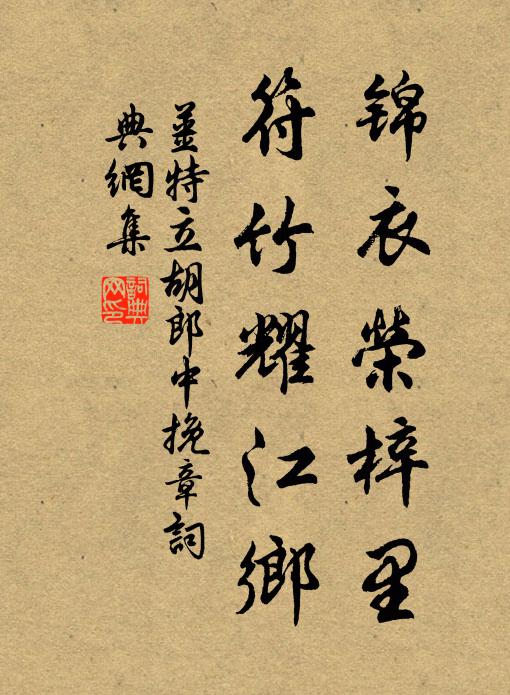 锦衣榮梓里
符竹耀江鄉
薑特立胡郎中挽章詞
典網集
詞典網印